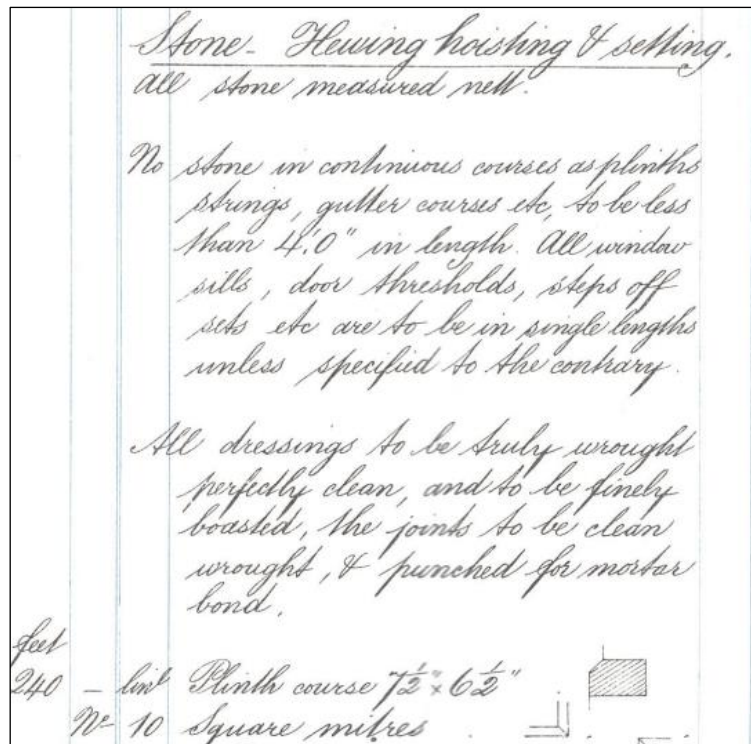 Stone - Hewing hoisting & setting.
All stone measured nett.
No stone in continuous courses as plinths
strings, gutter courses etc, to be less
than 4'.0" in length. All window
sills, door thresholds, steps off
sets etc are to be in single lengths
unless specified to the contrary.
All dressings to be truly wrought
perfectly clean, and to be finely
boasted, the joints to be clean
wrought, & punched for mortar
bond.
feet
240 - linl Plinth course 7½" × 6½"
No 10 Square mitres